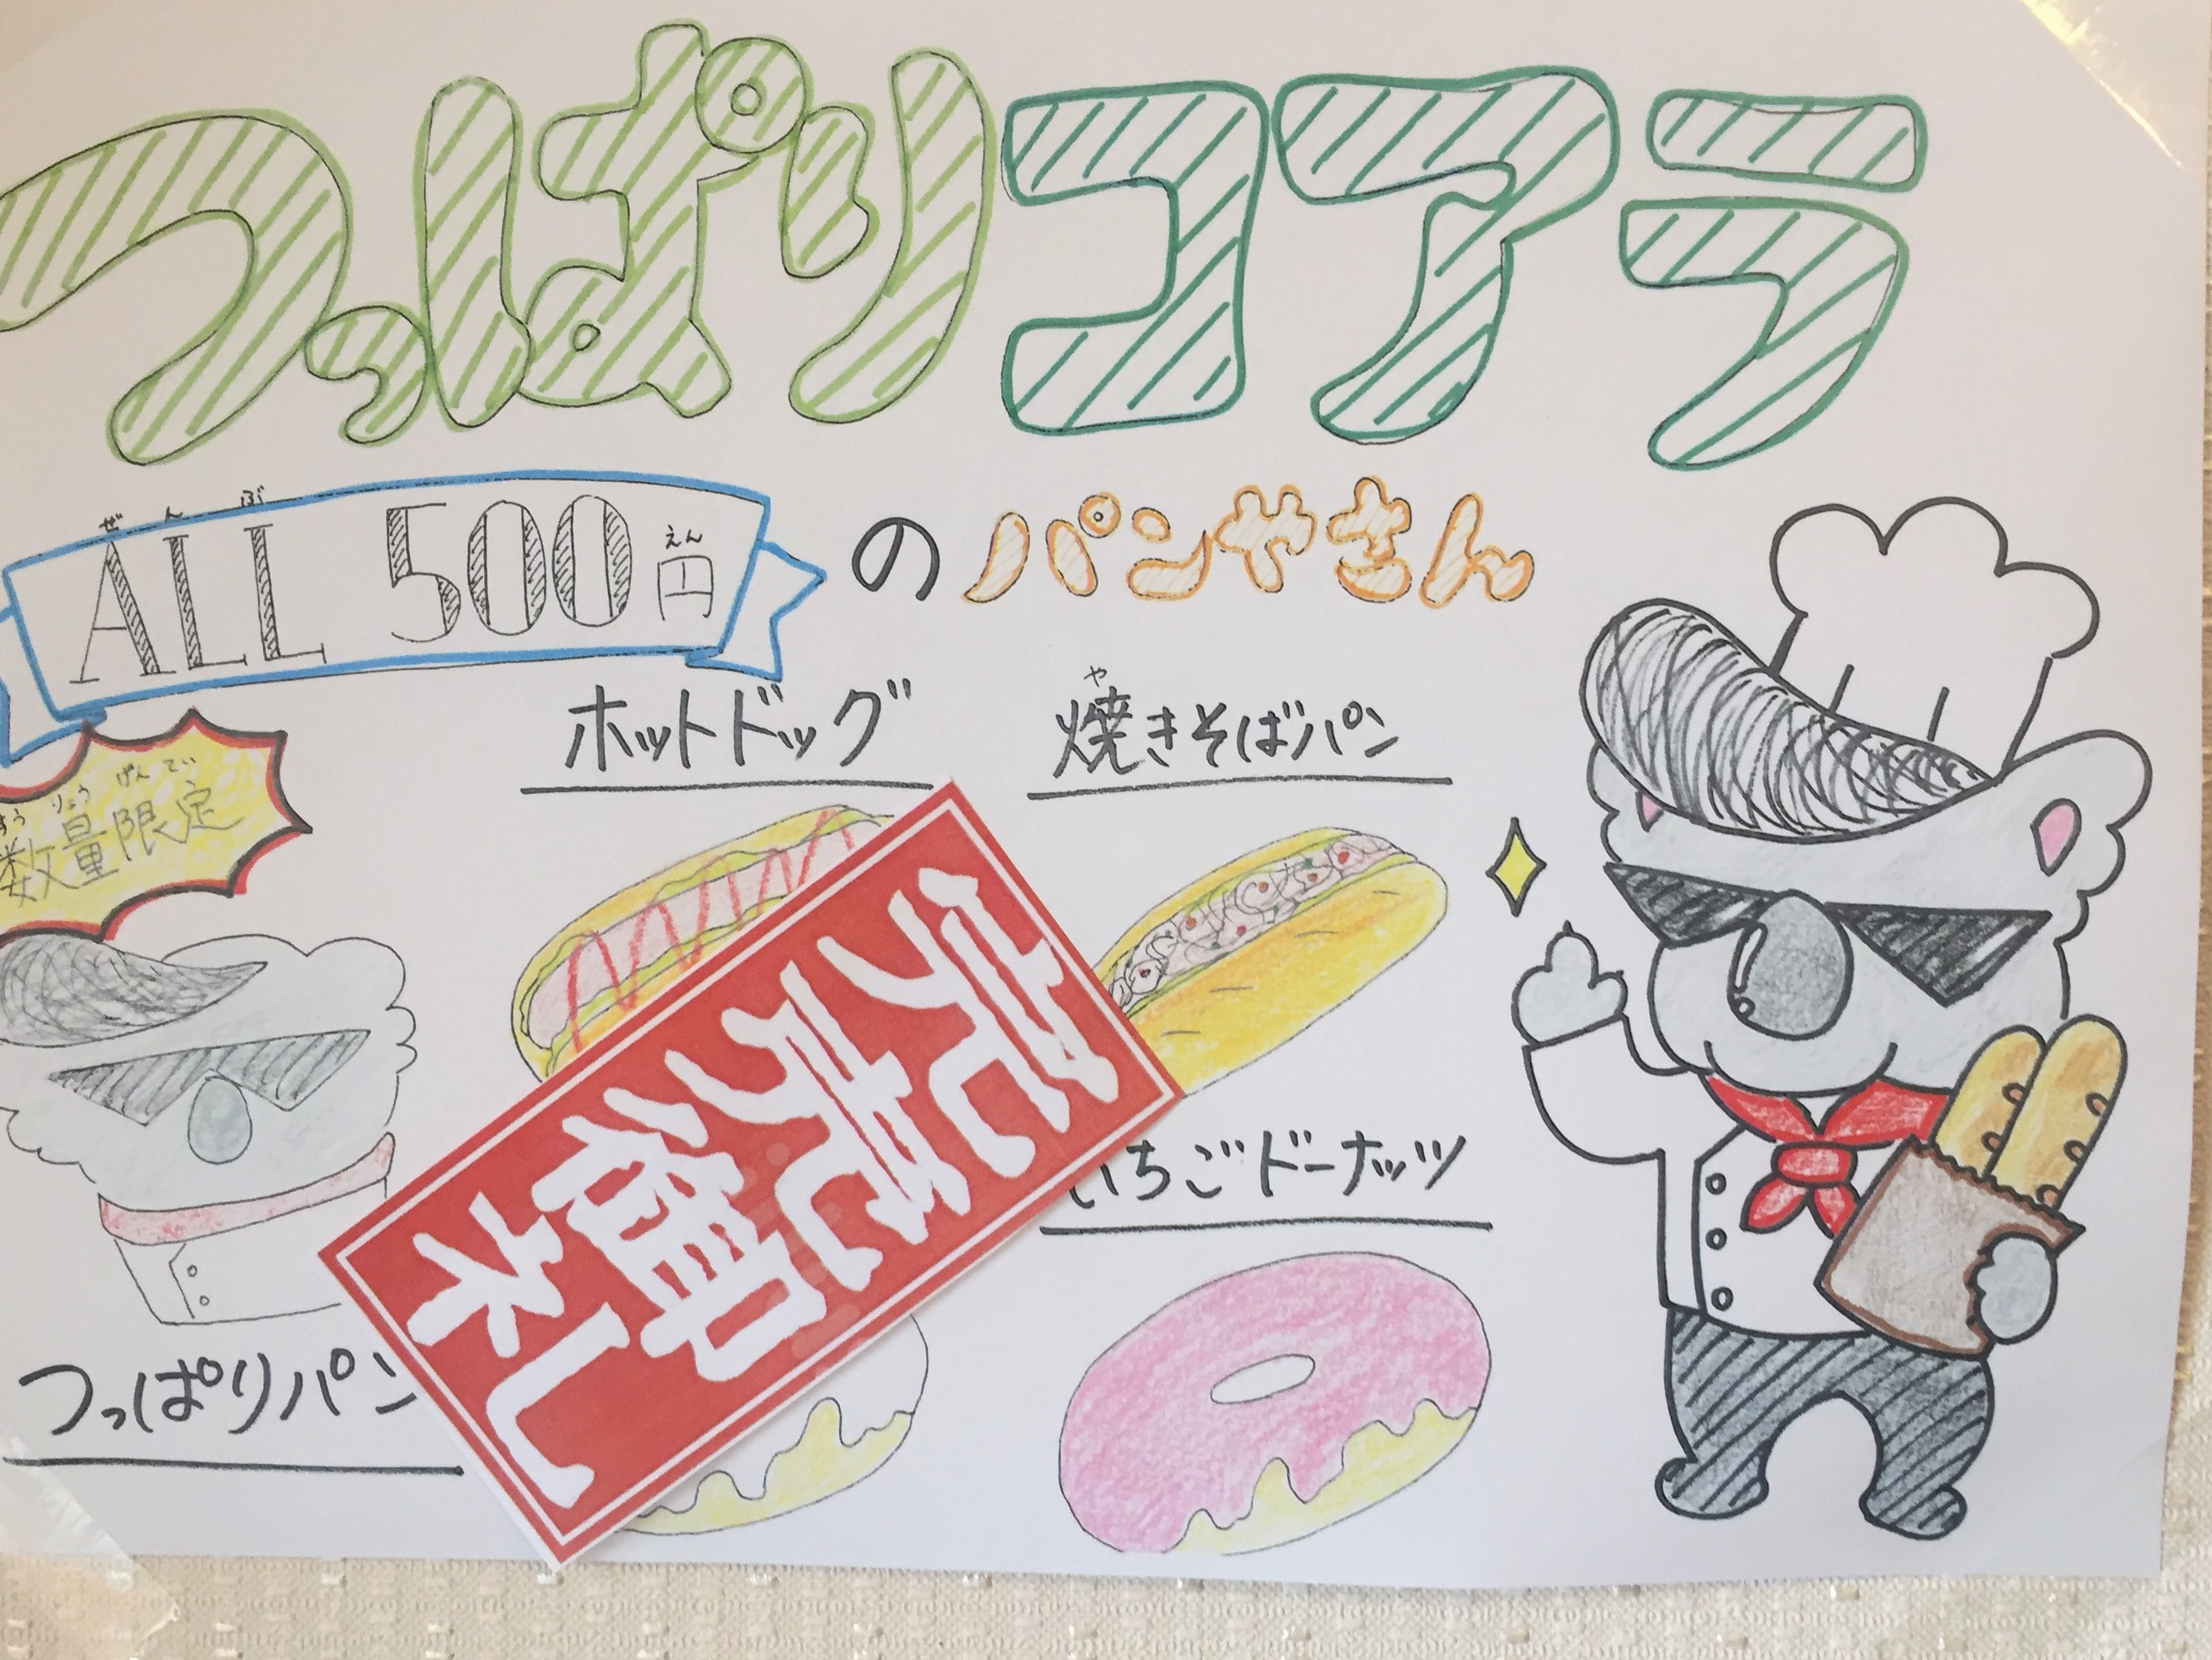 つっぱりコアラ
ぜんぶ
ALL 500円
えん
のパンやさん
ホットドッグ
や
焼きそばパン
すうりょうげんてい
数量限定
つっぱりパン
いちごドーナッツ
完売御礼